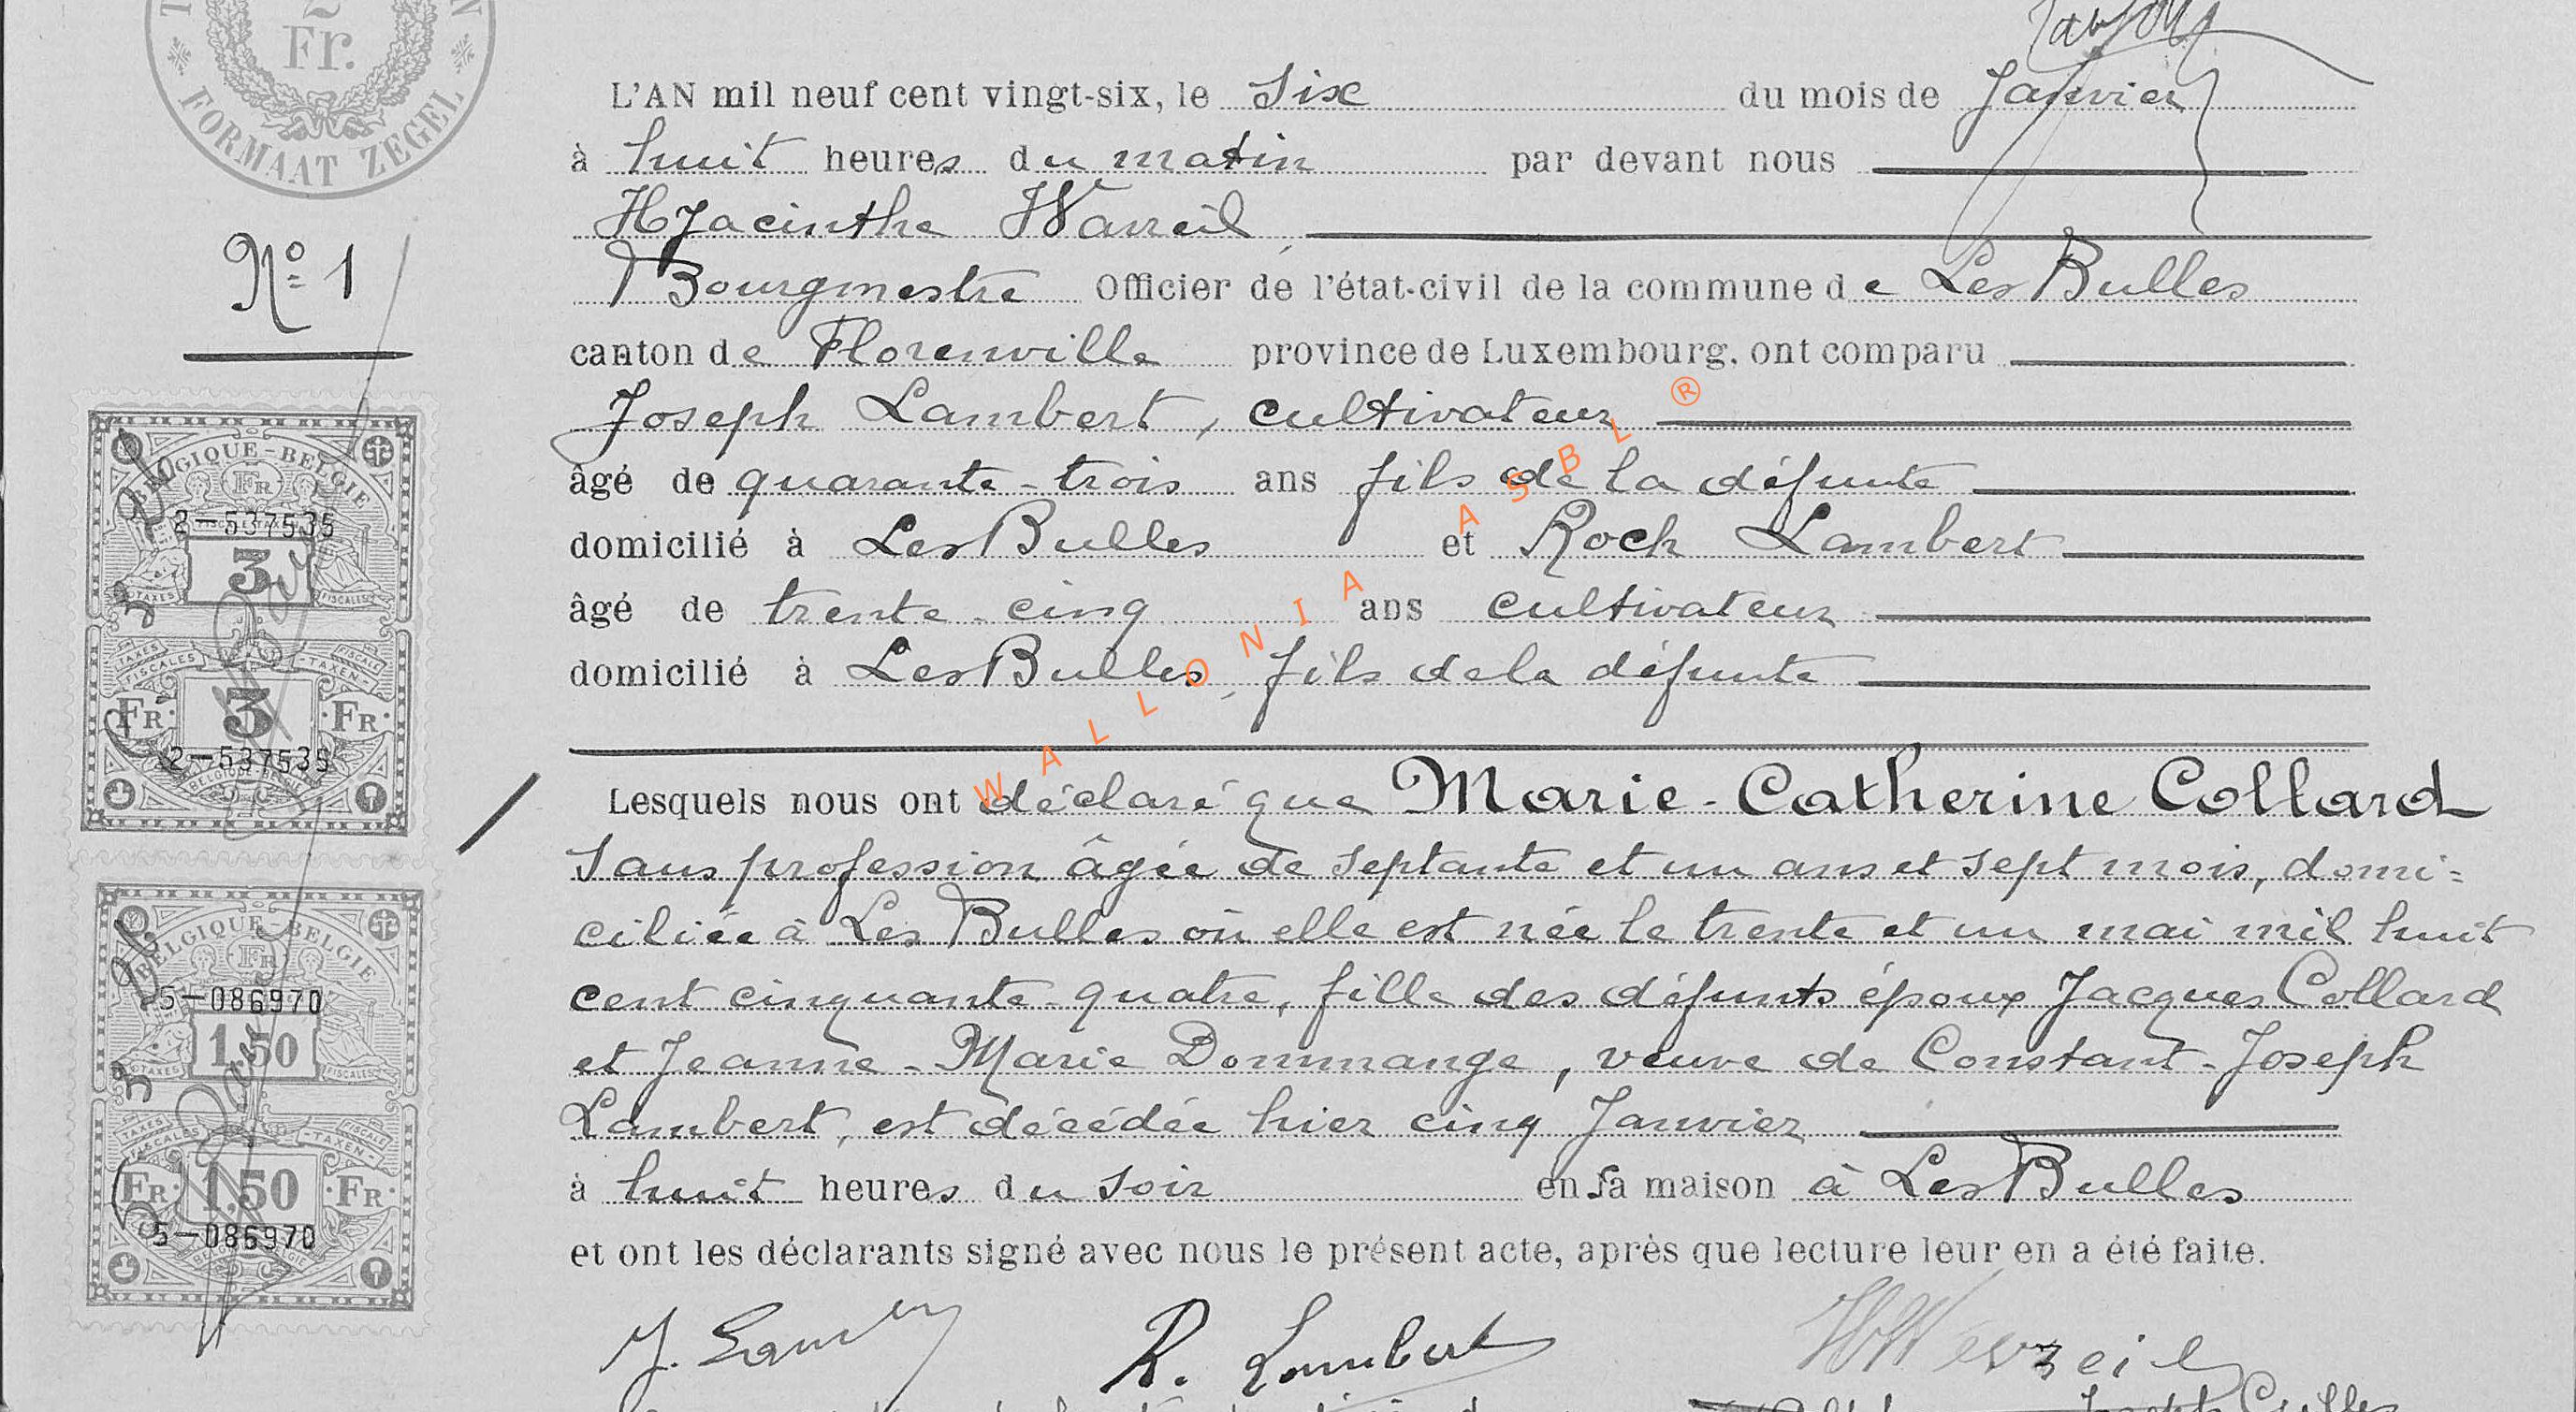 2
Fr.
FORMAAT ZEGEL
L'AN mil neuf cent vingt-six, le Six du mois de Janvier
à huit heures du matin par devant nous
Hyacinthe
Nº 1
Bourgmestre Officier de l'état-civil de la commune de Les Bulles
canton de Florenville province de Luxembourg, ont comparu
Joseph Lambert, cultivateur
âgé de quarante-trois ans fils de la défunte
domicilié à Les Bulles et Roch Lambert
âgé de trente-cinq ans cultivateur
domicilié à Les Bulles, fils de la défunte
Lesquels nous ont déclaré que Marie-Catherine Collard
Sans profession âgée de septante et un ans et sept mois, domi=
ciliée à Les Bulles où elle est née le trente et un mai mil huit
cent cinquante-quatre, fille des défunts époux Jacques Collard
et Jeanne-Marie Dommange, veuve de Constant-Joseph
Lambert, est décédée hier cinq Janvier
à huit heures du soir en sa maison à Les Bulles
et ont les déclarants signé avec nous le présent acte, après que lecture leur en a été faite.
J. R. Lambert
BELGIQUE-BELGIE
FR
2-537535
3
TAXES FISCALES
TAXES FISCALES TAXEN FISCALE
FR. 3 FR.
2-537535
BELGIQUE-BELGIE
BELGIQUE-BELGIE
FR
5-086970
1.50
TAXES FISCALES
TAXES FISCALES TAXEN FISCALE
FR. 1.50 FR.
5-086970
WALLONIA ASBL ®